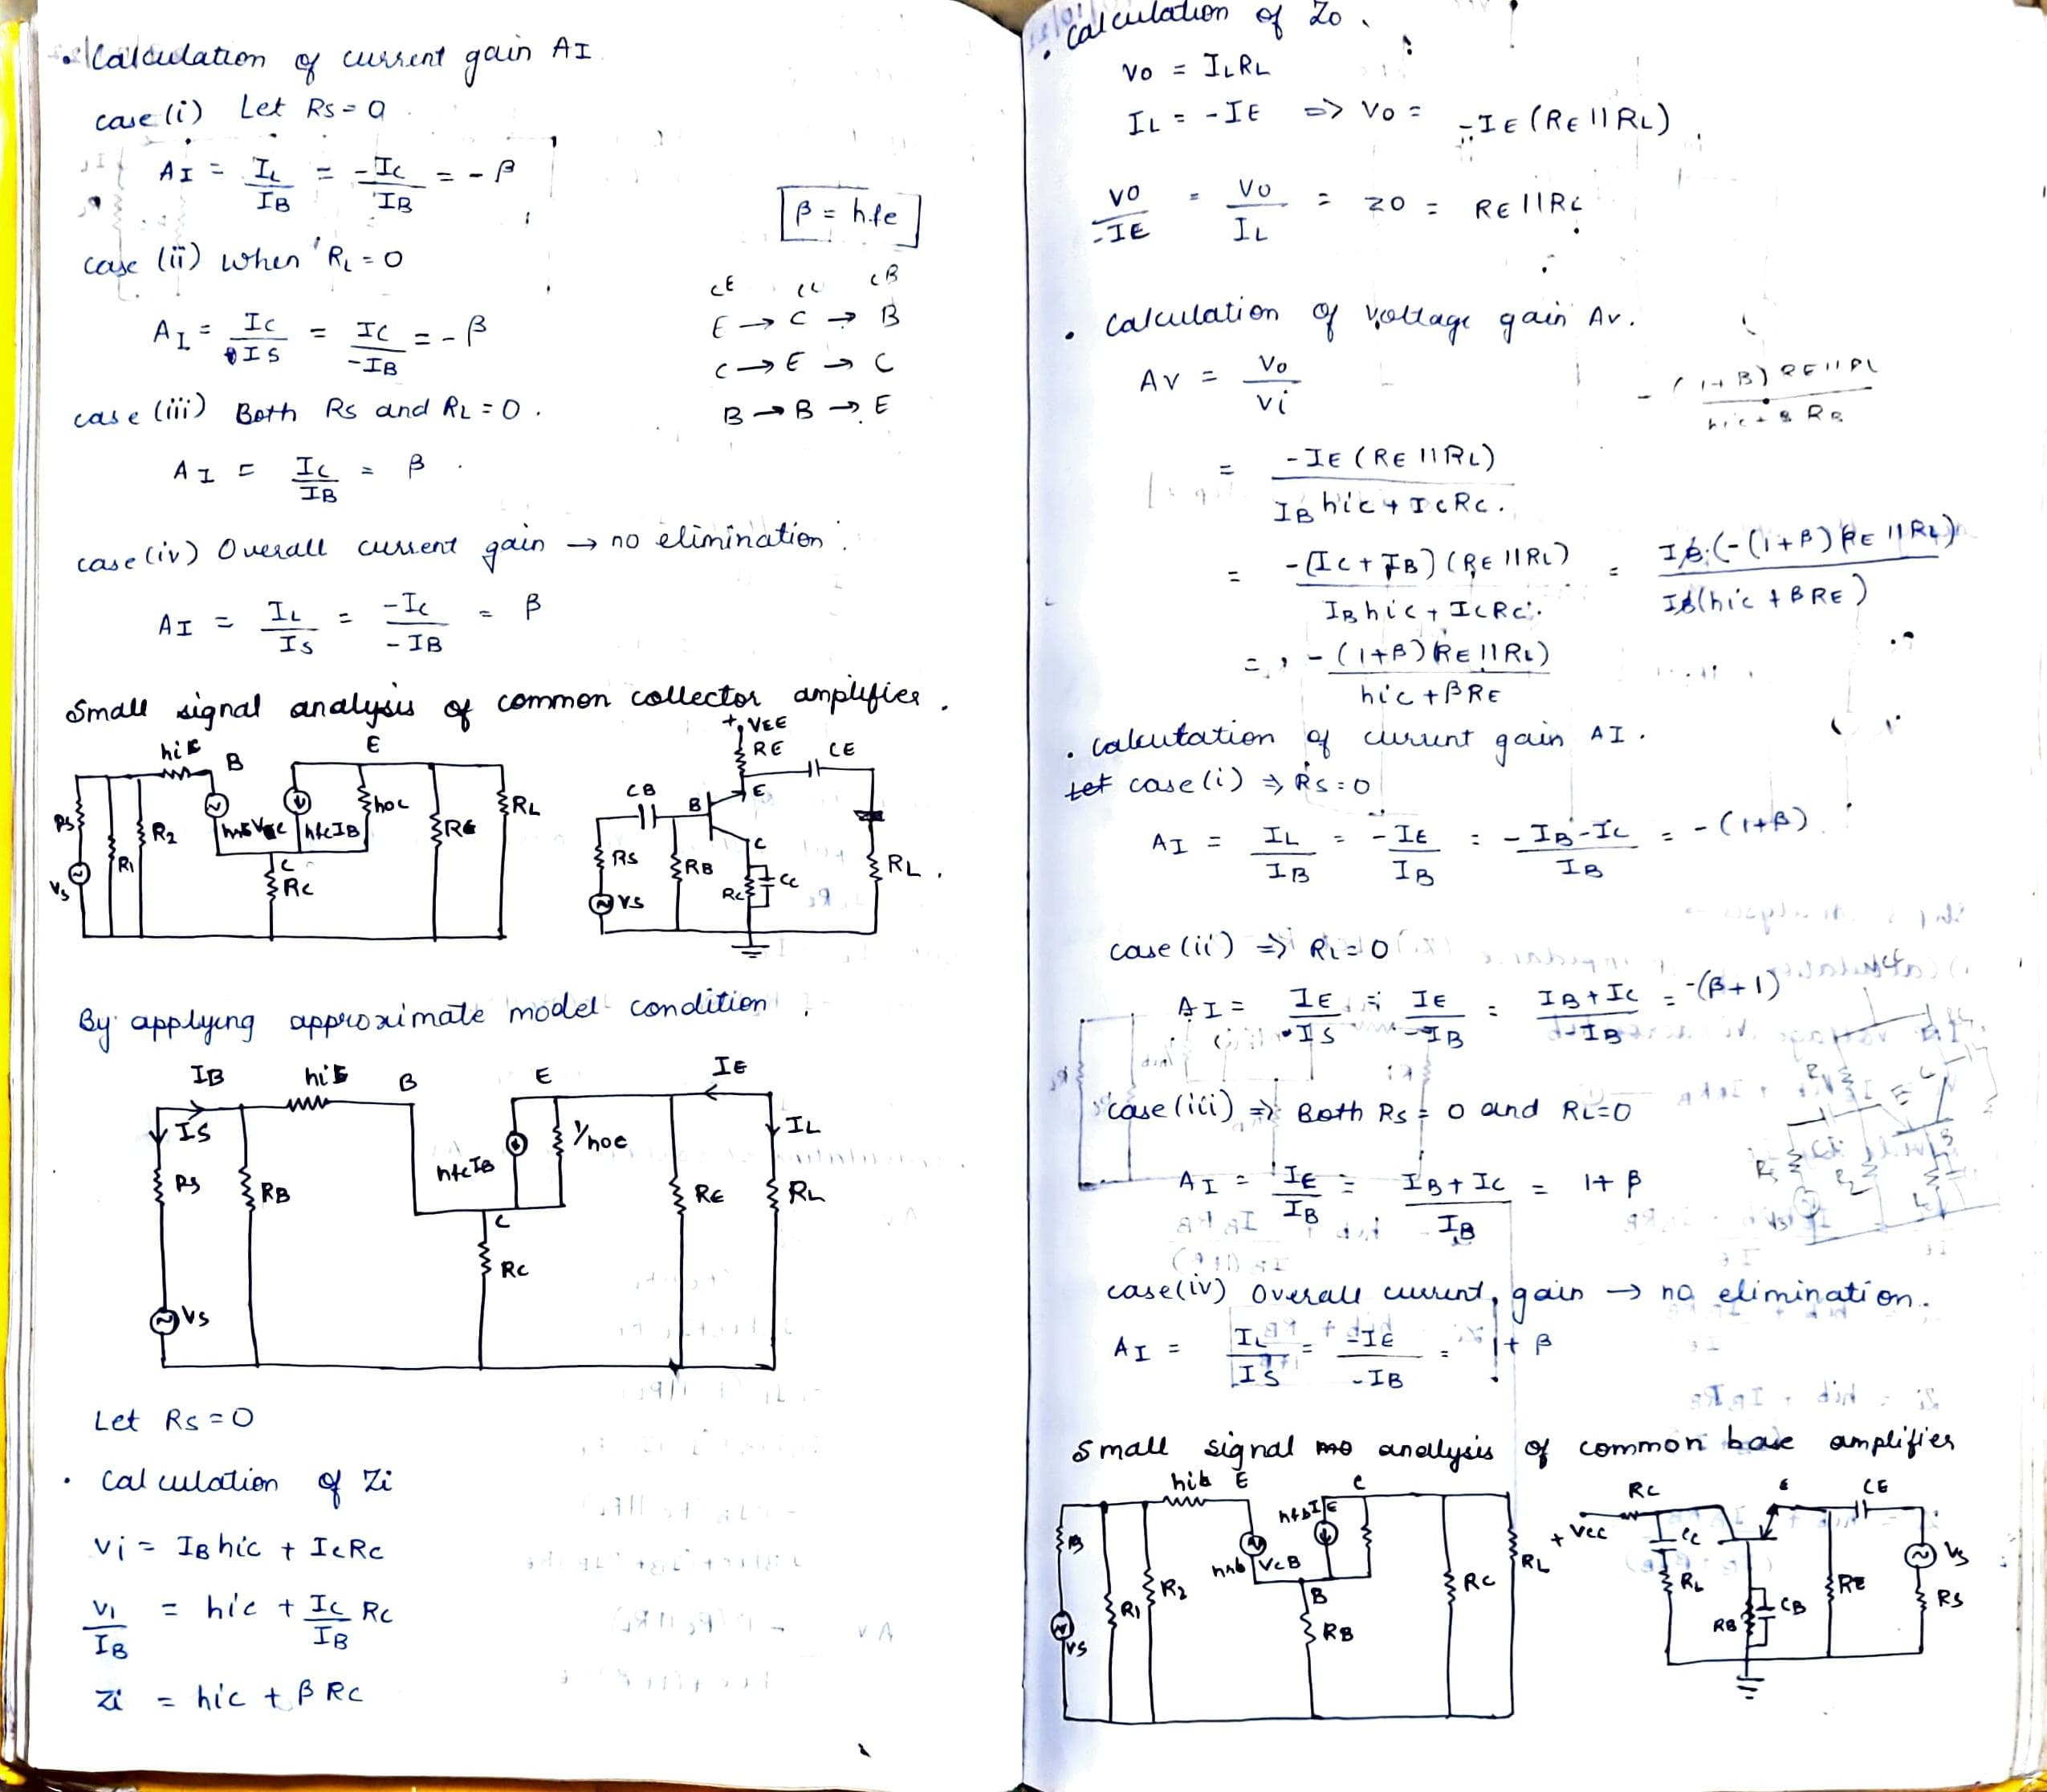 • Calculation of current gain AI
case (i) Let Rs = 0
AI = IL/IB = -IC/IB = -β
β = hfe
case (ii) when RL = 0
CE CC CB
E → C → B
AI = IC/IS = IC/-IB = -β
C → E → C
case (iii) Both Rs and RL = 0.
B → B → E
AI = IC/IB = β.
case (iv) Overall current gain → no elimination.
AI = IL/IS = -IC/-IB = β
Small signal analysis of common collector amplifier.
hic B E
Rs Vs R1 R2 hfcIB hoc RC RE RL
+VEE
RE CE
CB B E
C
Rs RB RC CC RL.
VS
By applying approximate model condition.
IB hic B E IE
IS IL
hfcIB 1/hoc
RS RB RE RL
C
RC
VS
Let Rs = 0
• Calculation of Zi
Vi = IB hic + IC RC
Vi/IB = hic + IC/IB RC
Zi = hic + β RC
• Calculation of Zo.
Vo = ILRL
IL = -IE => Vo = -IE (RE || RL).
Vo/-IE = Vo/IL = Zo = RE || RL
• Calculation of voltage gain Av.
Av = Vo/Vi
= -IE (RE || RL) / IB hic + IC RC.
= -[IC + IB] (RE || RL) / IB hic + IC RC. = IB (-(1+β) RE || RL) / IB (hic + β RE)
= -(1+β) RE || RL) / hic + β RE
• Calculation of current gain AI.
Let case (i) => Rs = 0
AI = IL/IB = -IE/IB = -IB-IC/IB = -(1+β)
case (ii) => RL = 0
AI = IE/-IS = IE/-IB = IB+IC/-IB = -(β+1)
case (iii) => Both Rs = 0 and RL = 0
AI = IE/IB = IB+IC/IB = 1+β
case (iv) Overall current gain → no elimination.
AI = IL/IS = -IE/-IB = 1+β
Small signal mo analysis of common base amplifier
hib E C
hfbIE
hrb VCB
R1 R2 B RC RL
RB
VS
RC E CE
+VCC CC
RL RB CB RE VS
RS